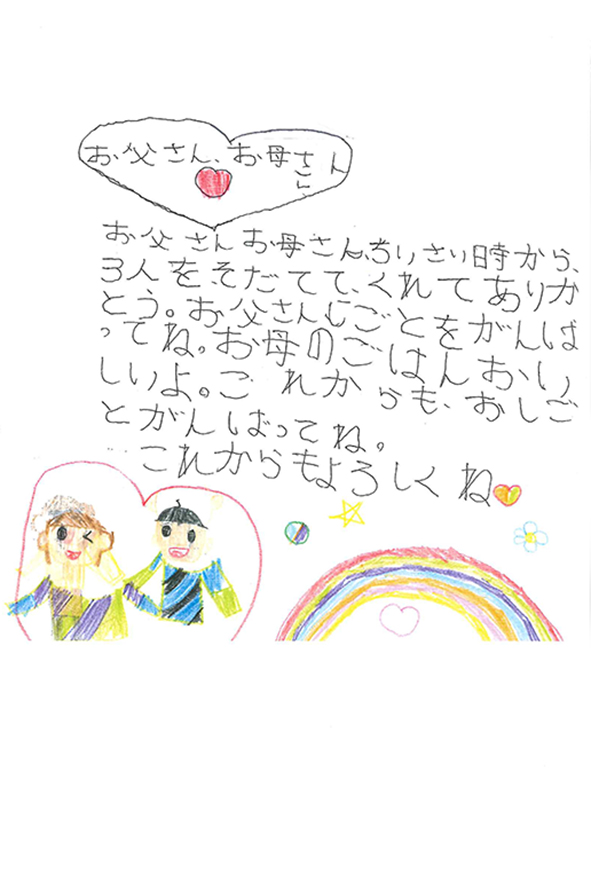 お父さん、お母さん
お父さんお母さん、ちいさい時から、
3人を、そだてて、くれてありが
とう。お父さんしごとをがんば
ってね。お母のごはんおい
しいよ。これからも、おしご
とがんばってね。
これからもよろしくね